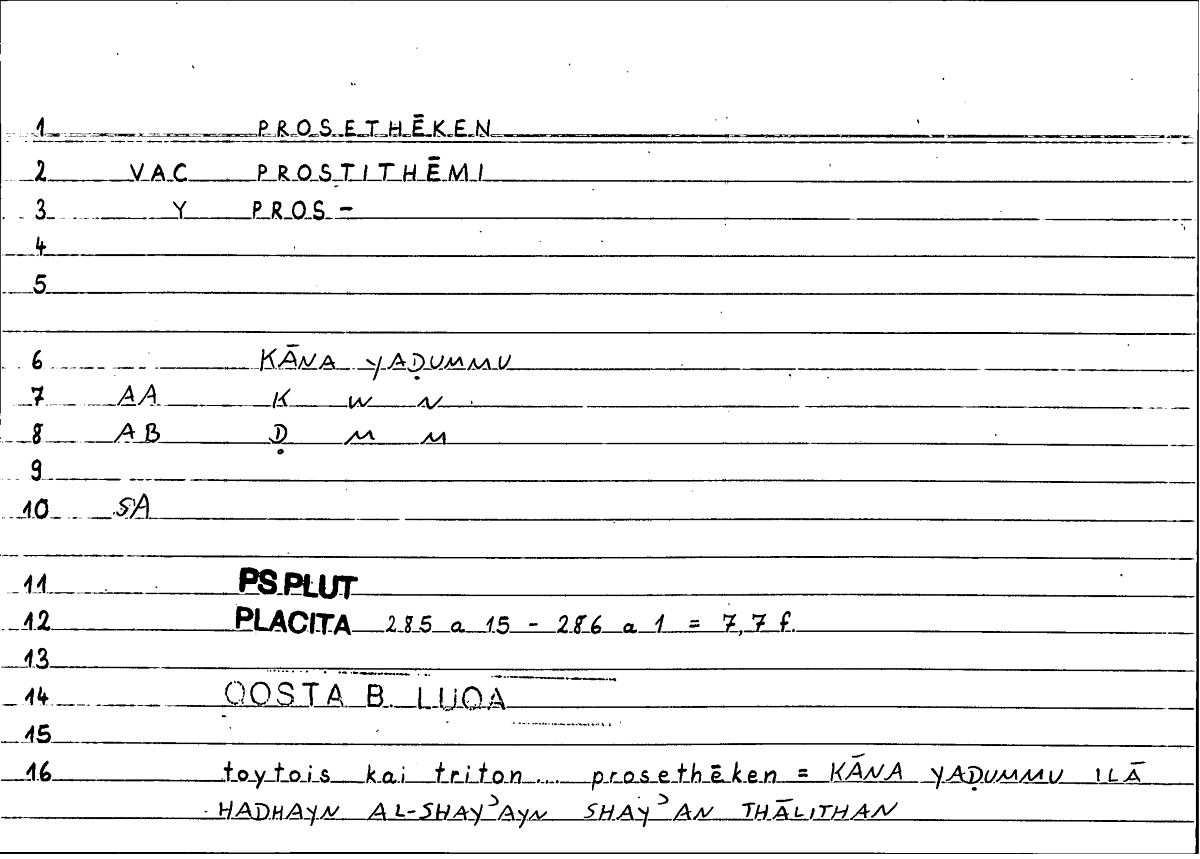 1 PROSETHĒKEN
2 VAC PROSTITHĒMI
3 Y PROS-
4
5
6 KĀNA YAḌUMMU
7 AA K W N
8 AB Ḍ M M
9
10 SA
11 PS.PLUT
12 PLACITA 285 a 15 - 286 a 1 = 7,7 f.
13
14 QOSTA B. LUQA
15
16 toytois kai triton... prosethēken = KĀNA YAḌUMMU ILĀ
HADHAYN AL-SHAYʾAYN SHAYʾAN THĀLITHAN